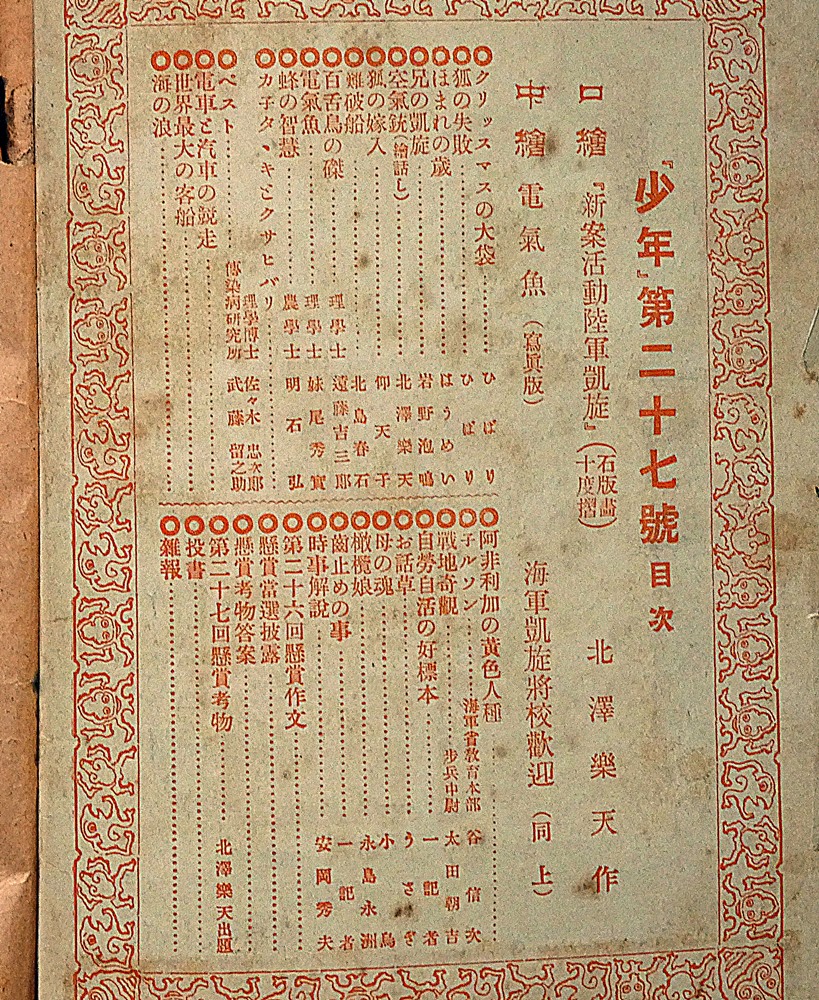 『少年』第二十七號目次
口繪『新案活動陸軍凱旋』（石版畫十度摺）北澤樂天作
中繪 電氣魚（寫眞版）海軍凱旋將校歡迎（同上）
◎クリッスマスの大袋……ひばり
◎狐の失敗……ひばり
◎はまれの歲……はうめい
◎兄の凱旋……岩野泡鳴
◎空氣銃（繪話し）……北澤樂天
◎狐の嫁入……仰天子
◎難破船……北島春石
◎百舌鳥の磔……理學士 遠藤吉三郎
◎電氣魚……理學士 妹尾秀實
◎蜂の智慧……農學士 明石弘
◎カ子タヽキとクサヒバリ……理學博士 佐々木忠次郎
◎ペスト……傳染病研究所 武藤留之助
◎電車と汽車の競走
◎世界最大の客船
◎海の浪
◎阿非利加の黃色人種
◎子ルソン……海軍省敎育本部 谷信次
◎戰地奇觀……步兵中尉 太田朝吉
◎自勞自活の好標本……一記者
◎お話草……うさぎ
◎母の魂……小鳥
◎橄欖娘……永島永洲
◎齒止めの事……一記者
◎時事解說……安岡秀夫
◎第二十六回懸賞作文
◎懸賞當選披露
◎懸賞考物答案
◎第二十七回懸賞考物……北澤樂天出題
◎投書
◎雜報